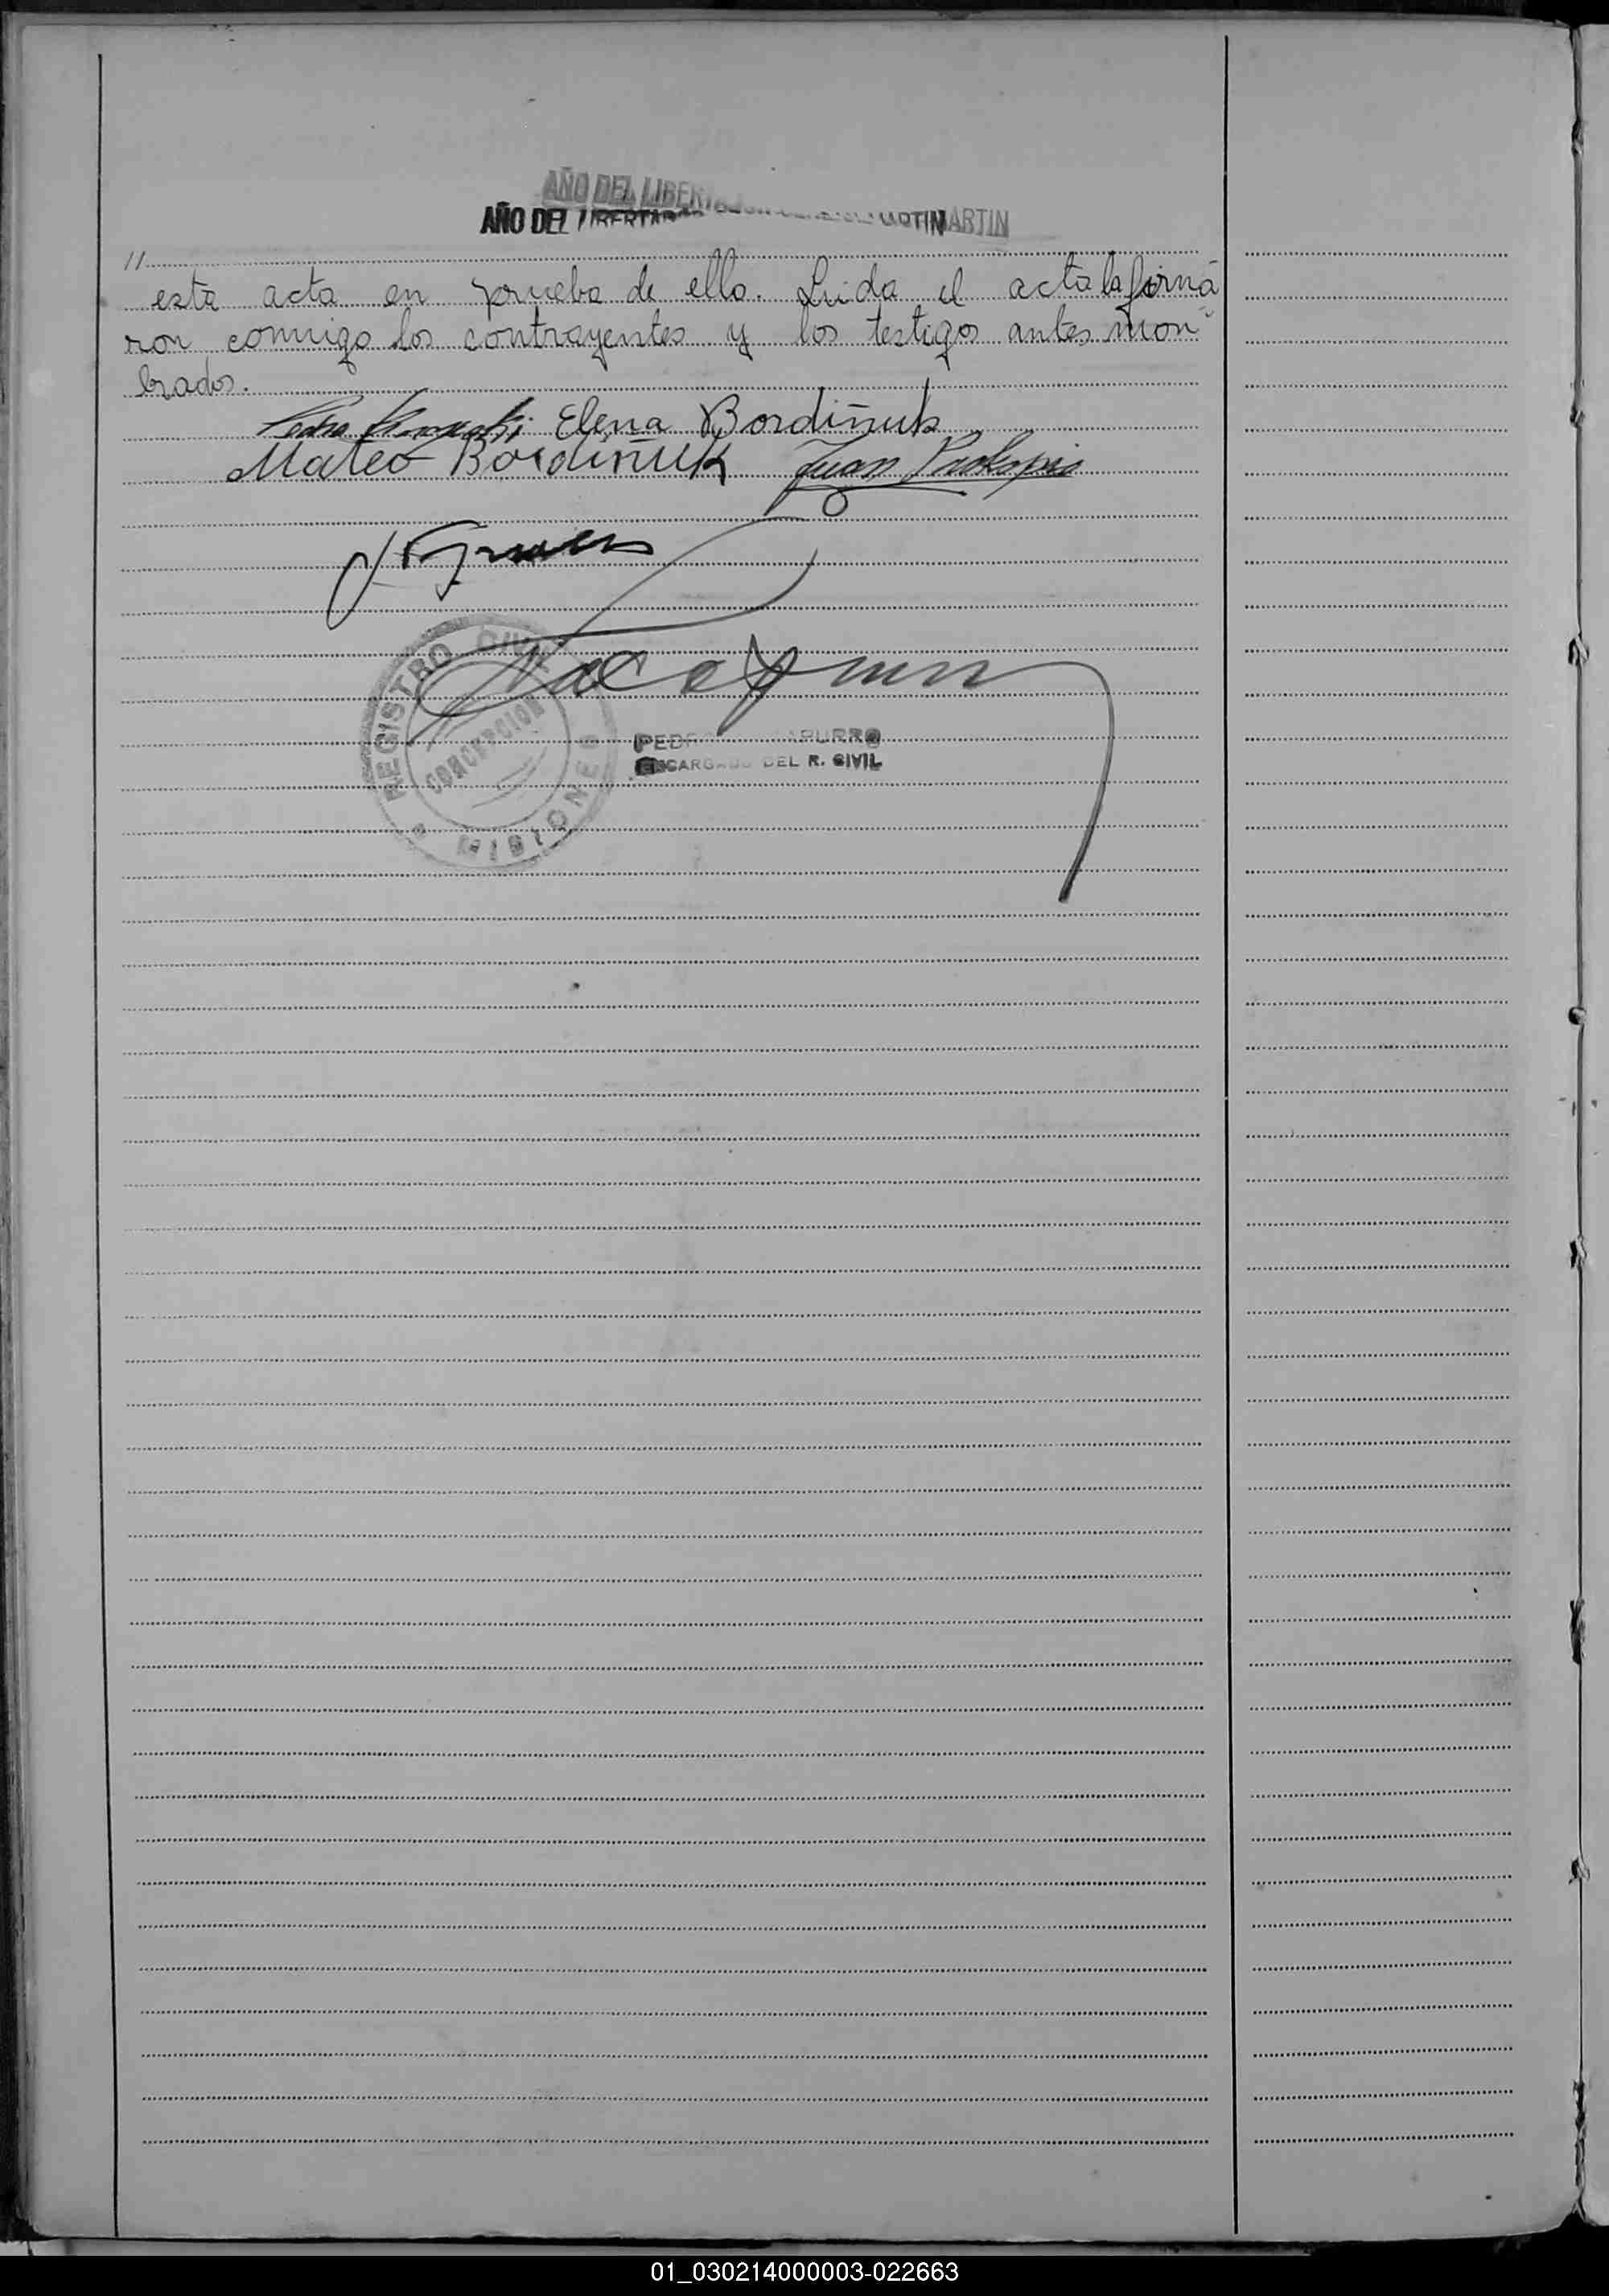 AÑO DEL LIBERTADOR
AÑO DEL LIBERTADOR MARTIN MARTIN
//
esta acta en prueba de ello. Leida el acta la firma
ron conmigo los contrayentes y los testigos antes mon-
brados.
Pedro Elena Bordiñuk
Mateo Bordiñuk Juan Prokopio
REGISTRO CIVIL
CONCEPCION
MISIONES
PEDRO
ENCARGADO DEL R. CIVIL
01_030214000003-022663